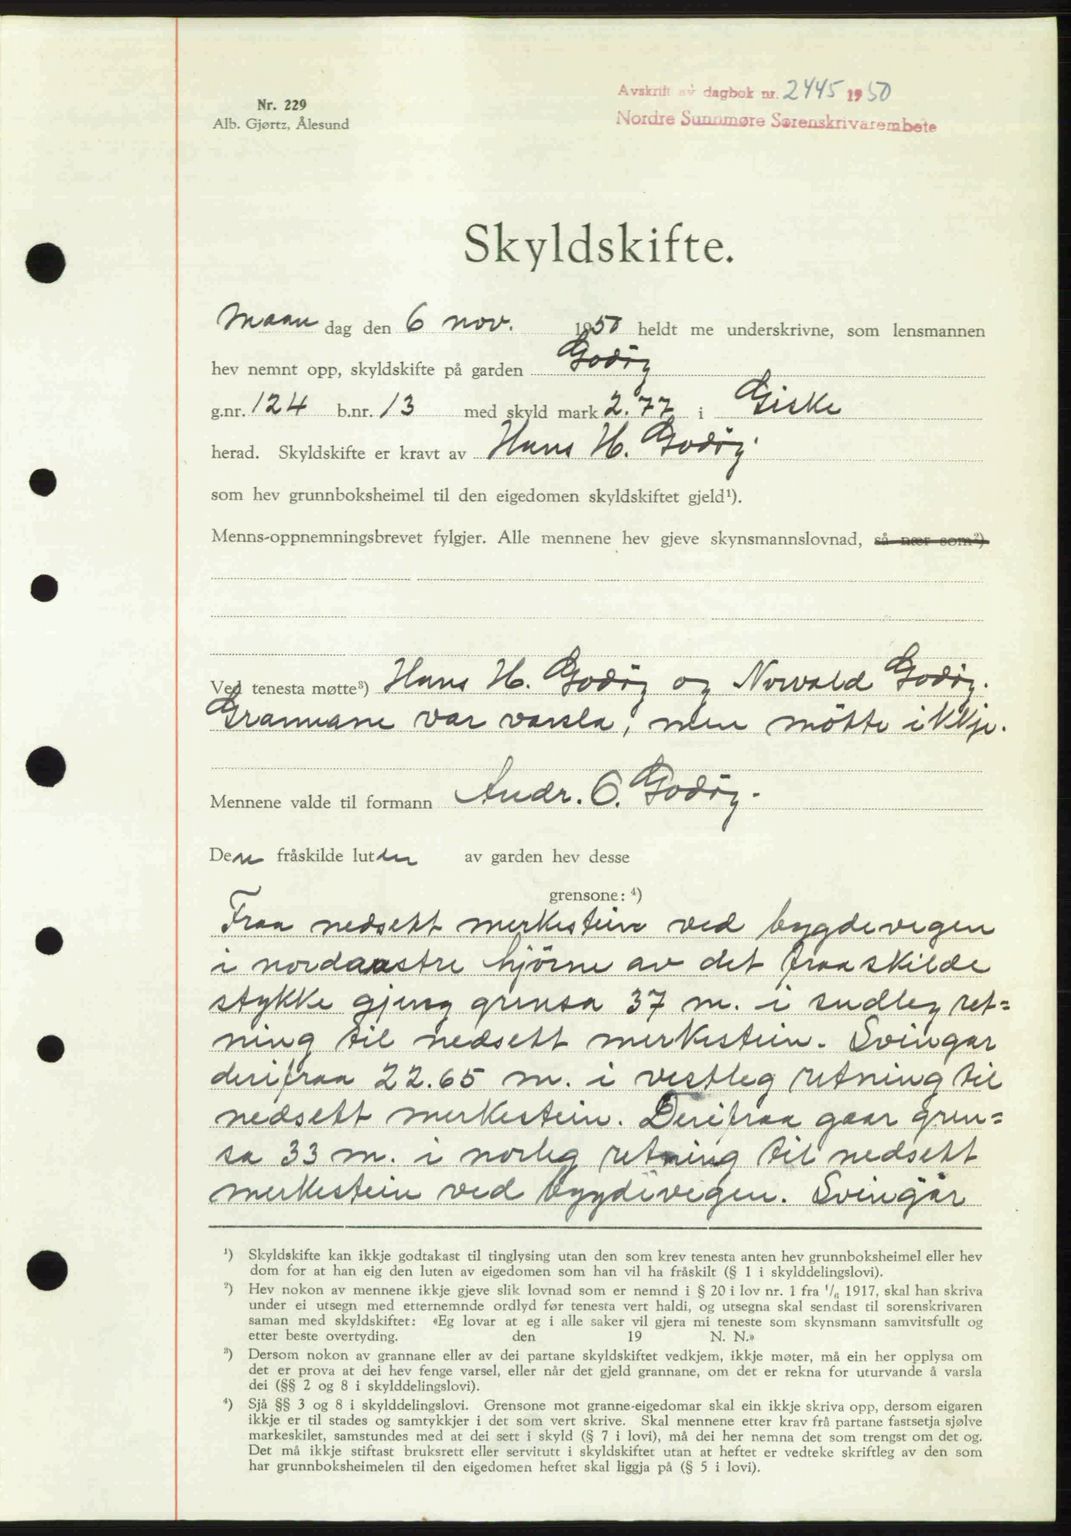 Avskrift av dagbok nr. 2445 1950
Nordre Sunnmøre Sorenskrivarembete
Nr. 229
Alb. Gjørtz, Ålesund
Skyldskifte.
Maan dag den 6 nov. 1950 heldt me underskrivne, som lensmannen
hev nemnt opp, skyldskifte på garden Godöy
g.nr. 124 b.nr. 13 med skyld mark 2.77 i Giske
herad. Skyldskifte er kravt av Hans H. Godöy.
som hev grunnboksheimel til den eigedomen skyldskiftet gjeld¹).
Menns-oppnemningsbrevet fylgjer. Alle mennene hev gjeve skynsmannslovnad, så nær som²)
Ved tenesta møtte³) Hans H. Godöy og Norvald Godöy.
Grannane var varsla, men mötte ikkje.
Mennene valde til formann Andr. O. Godöy.
Den fråskilde luten av garden hev desse
grensone: ⁴)
Fraa nedsett merkestein ved bygdevegen
i nordaustre hjörne av det fraaskilde
stykke gjeng grensa 37 m. i sudleg ret=
ning til nedsett merkestein. Svingar
derifraa 22.65 m. i vestleg retning til
nedsett merkestein. Derifraa gaar gren=
sa 33 m. i norleg retning til nedsett
merkestein ved bygdevegen. Svingar
¹) Skyldskifte kan ikkje godtakast til tinglysing utan den som krev tenesta anten hev grunnboksheimel eller hev
dom for at han eig den luten av eigedomen som han vil ha fråskilt (§ 1 i skylddelingslovi).
²) Hev nokon av mennene ikkje gjeve slik lovnad som er nemnd i § 20 i lov nr. 1 fra ¹/₆ 1917, skal han skriva
under ei utsegn med etternemnde ordlyd før tenesta vert haldi, og utsegna skal sendast til sorenskrivaren
saman med skyldskiftet: «Eg lovar at eg i alle saker vil gjera mi teneste som skynsmann samvitsfullt og
etter beste overtyding. den 19 N. N.»
³) Dersom nokon av grannane eller av dei partane skyldskiftet vedkjem, ikkje møter, må ein her opplysa om
det er prova at dei hev fenge varsel, eller når det gjeld grannane, om det er rekna for uturvande å varsla
dei (§§ 2 og 8 i skylddelingslovi).
⁴) Sjå §§ 3 og 8 i skylddelingslovi. Grensone mot granne-eigedomar skal ein ikkje skriva opp, dersom eigaren
ikkje er til stades og samtykkjer i det som vert skrive. Skal mennene etter krav frå partane fastsetja sjølve
markeskilet, samstundes med at dei sett i skyld (§ 7 i lovi), må dei her nemna det som trengst om det og.
Det må ikkje stiftast bruksrett eller servitutt i skyldskiftet utan at heftet er vedteke skriftleg av den som
har grunnboksheimelen til den eigedomen heftet skal liggja på (§ 5 i lovi).